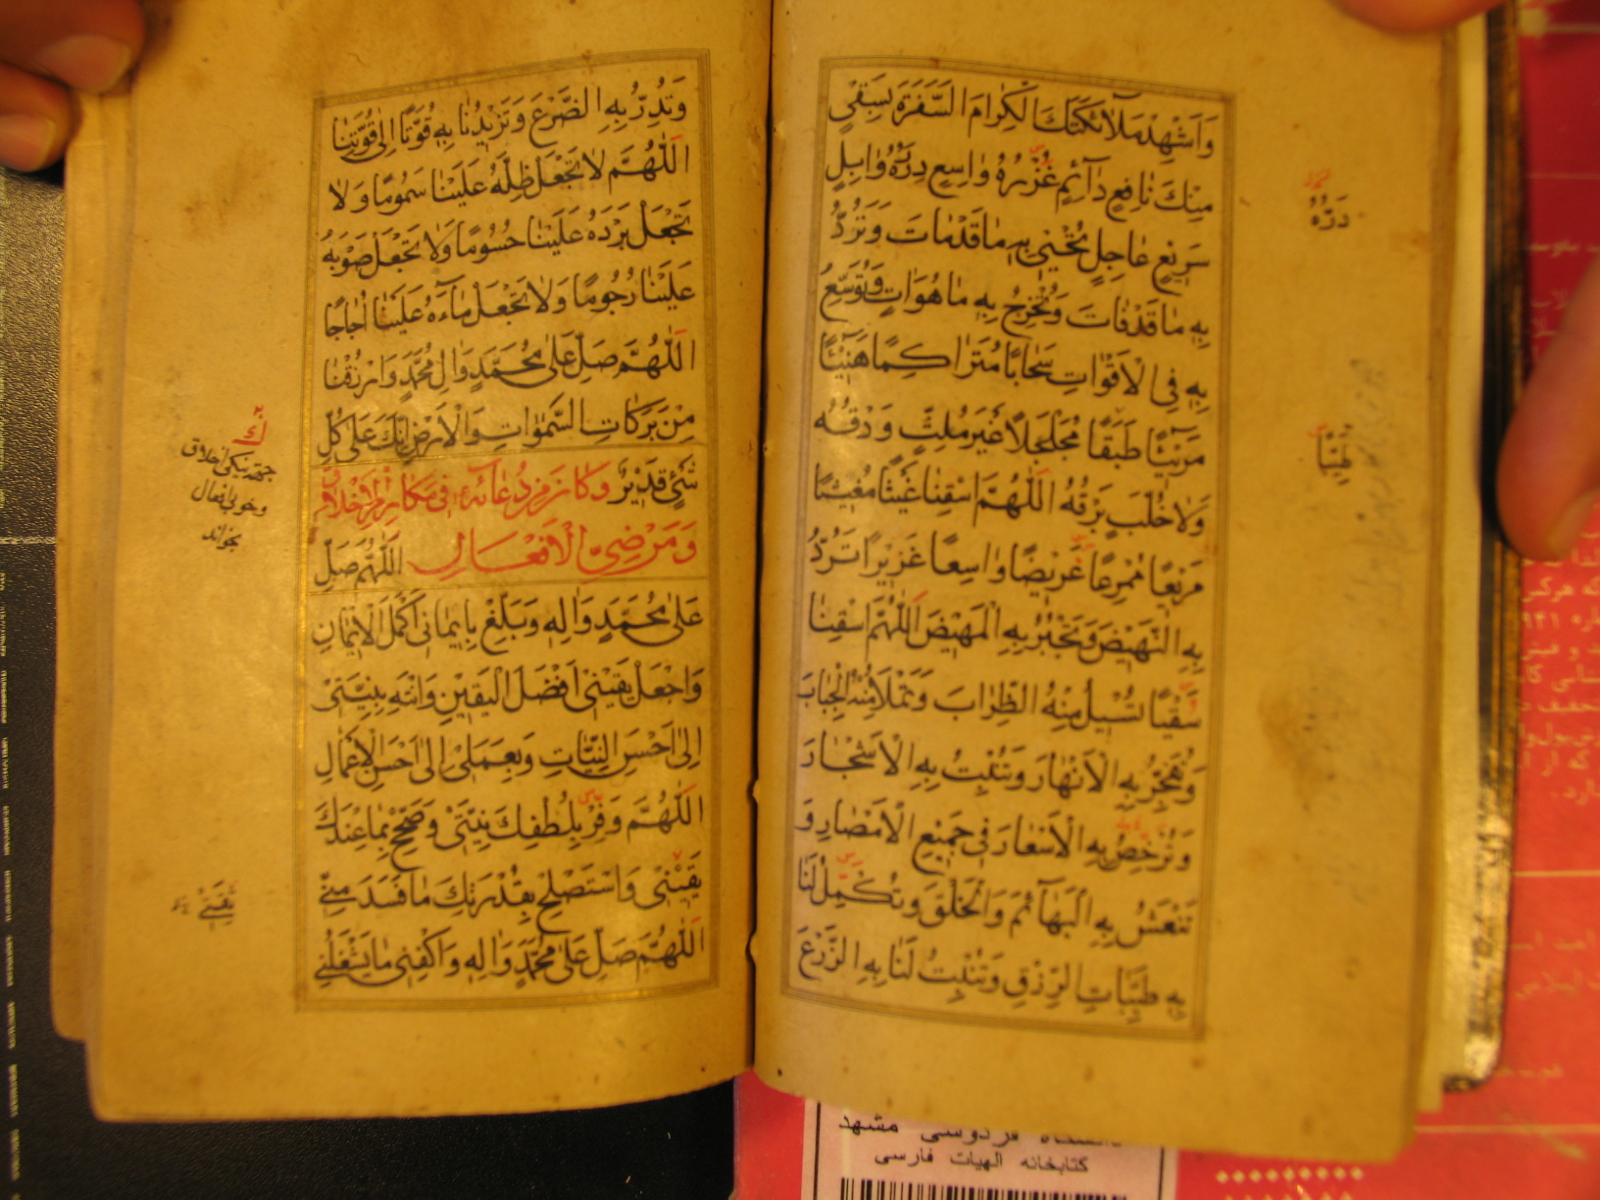 وَاَشْهِدْ مَلآئِكَتَكَ الْكِرامَ السَّفَرَةَ بِسَقْىٍ
مِنْكَ نافِعٍ دآئِمٍ غُزْرُهُ واسِعٍ دِرَرُهُ وابِلٍ
سَريعٍ عاجِلٍ تُحْيى بِهِ ماقَدْمات وَتَرُدُّ
بِهِ ماقَدْفات وَتُخْرِجُ بِهِ ما هُوَاتٍ وَتُوَسِّعُ
بِهِ فِى الْاَقْواتِ سَحابًا مُتَراكِمًا هَنيئًا
مَريئًا طَبَقًا مُجَلْجَلاً غَيْرَ مُلِثٍّ وَدْقُهُ
وَلاخُلَّبٍ بَرْقُهُ اَللّهُمَّ اسْقِنا غَيْثًا مُغيثًا
مَريعًا مُمْرِعًا عَريضًا واسِعًا غَزيرًا تَرُدُّ
بِهِ النَّهيضَ وَتَجْبُرُ بِهِ الْمَهيضَ اَللّهُمَّ اسْقِنا
سَقْيًا تُسيلُ مِنْهُ الظِّرابَ وَتَمْلَأُ مِنْهُ الْجِبابَ
وَتُفَجِّرُ بِهِ الْاَنْهارَ وَتُنْبِتُ بِهِ الْاَشْجارَ
وَتُرْخِصُ بِهِ الْاَسْعارَ فى جَميعِ الْاَمْصارِ وَ
تَنْعَشُ بِهِ الْبَهآئِمَ وَالْخَلْقَ وَتُكْمِلُ لَنا
بِهِ طَيِّباتِ الرِّزْقِ وَتُنْبِتُ لَنا بِهِ الزَّرْعَ
دَرُّهُ
وَتُدِرُّ بِهِ الضَّرْعَ وَتَزيدُنا بِهِ قُوَّةً اِلى قُوَّتِنا
اَللّهُمَّ لا تَجْعَلْ ظِلَّهُ عَلَيْنا سَمُومًا وَلا
تَجْعَلْ بَرْدَهُ عَلَيْنا حُسُومًا وَلا تَجْعَلْ صَوْبَهُ
عَلَيْنا رُجُومًا وَلا تَجْعَلْ ماءَهُ عَلَيْنا اُجاجًا
اَللّهُمَّ صَلِّ عَلى مُحَمَّدٍ وَالِ مُحَمَّدٍ وَارْزُقْنا
مِنْ بَرَكاتِ السَّمواتِ وَالْاَرْضِ اِنَّكَ عَلى كُلِّ
شَىْءٍ قَديرٌ وَكانَ مِنْ دُعائِهِ فى مَكارِمِ الْاَخْلاقِ
وَمَرْضِىِّ الْاَفْعالِ اَللّهُمَّ صَلِّ
عَلى مُحَمَّدٍ وَالِهِ وَبَلِّغْ بِايمانى اَكْمَلَ الْايمانِ
وَاجْعَلْ يَقينى اَفْضَلَ الْيَقينِ وَانْتَهِ بِنِيَّتى
اِلى اَحْسَنِ النِّيّاتِ وَبِعَمَلى اِلى اَحْسَنِ الْاَعْمالِ
اَللّهُمَّ وَفِّرْ بِلُطْفِكَ نِيَّتى وَصَحِّحْ بِماعِنْدَكَ
يَقينى وَاسْتَصْلِحْ بِقُدْرَتِكَ مافَسَدَ مِنّى
اَللّهُمَّ صَلِّ عَلى مُحَمَّدٍ وَالِهِ وَاكْفِنى مايَشْغَلُنى
جهة نيكى اخلاق
وخوبى افعال
بخواند
دانشگاه فردوسی مشهد
کتابخانه الهیات فارسی